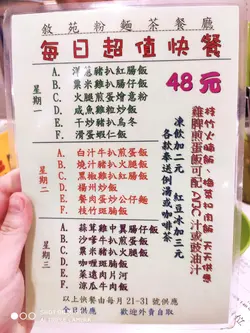 敘苑粉麵茶餐廳
每日超值快餐
48元
星期一
A. 洋蔥豬扒紅腸飯
B. 粟米雞扒腸仔飯
C. 火腿煎蛋燴意粉
D. 咸魚雞粒炒飯
E. 干炒豬扒烏冬
F. 滑蛋蝦仁飯
星期二
A. 白汁牛扒煎蛋飯
B. 燒汁豬扒火腿飯
C. 黑椒雞扒紅腸飯
D. 楊州炒飯
E. 餐肉蛋炒公仔麵
F. 枝竹斑腩飯
星期三
A. 蒜茸雞中翼腸仔飯
B. 沙嗲牛扒煎蛋飯
C. 茄汁豬扒火腿飯
D. 咖喱斑腩飯
E. 菜遠肉片河
F. 涼瓜牛肉飯
凍飲加二元 紅豆冰加三元
各款奉送例湯或咖啡茶
枝竹火腩飯、梅菜扣肉飯 天天供應
雞脾煎蛋飯可配ABC汁或豉油汁
以上快餐由每月21-31號供應
全日供應 歡迎外賣自取